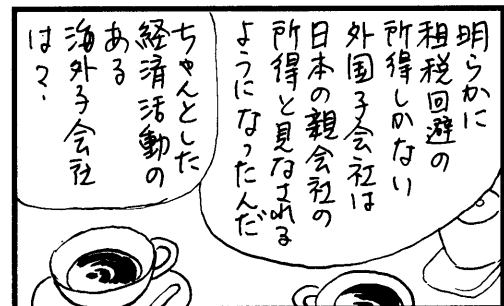 明らかに
租税回避の
所得しかない
外国子会社は
日本の親会社の
所得と見なされる
ようになったんだ
ちゃんとした
経済活動の
ある
海外子会社
は？